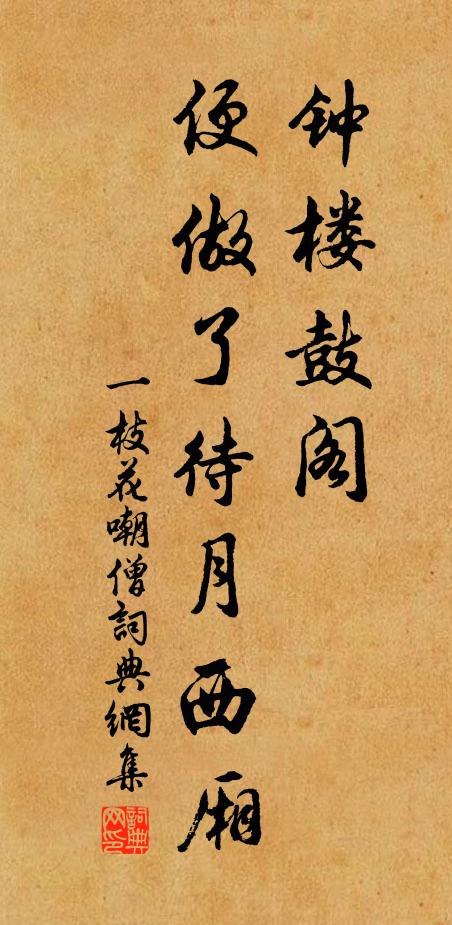 钟楼鼓阁
便做了待月西厢
一枝花嘲僧詞典網集
詞典网印